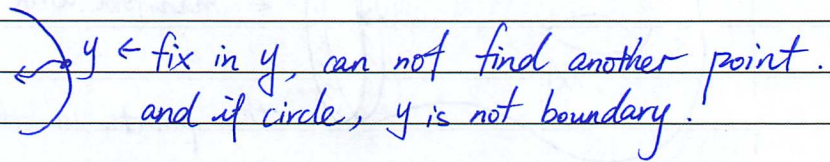 y ← fix in y, can not find another point.
and if circle, y is not boundary.